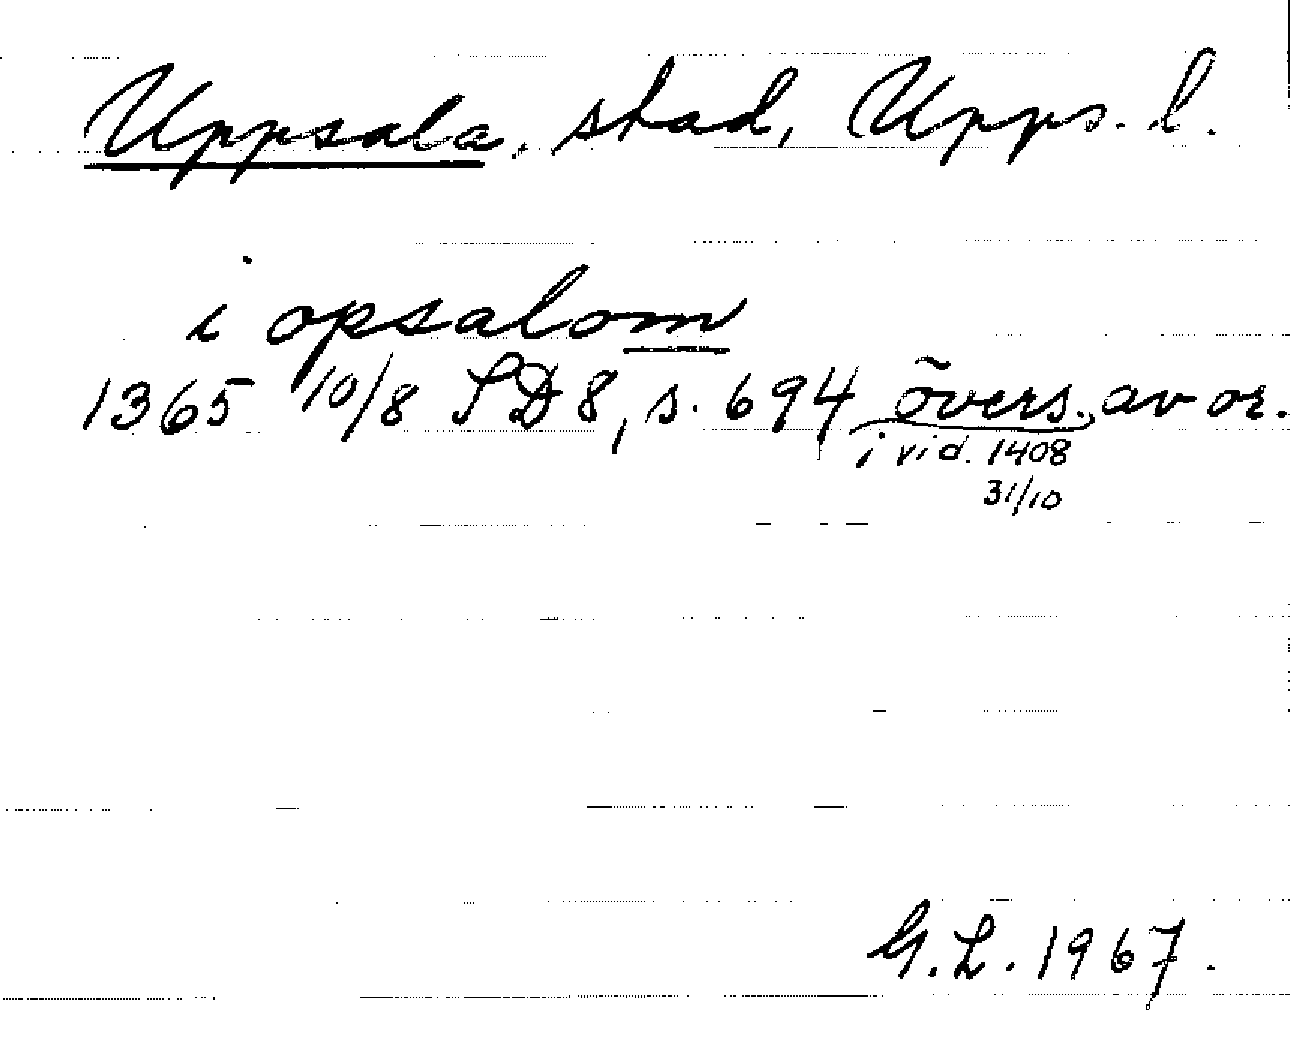 Uppsala, stad, Upps. l.
i opsalom
1365 10/8 SD 8, s. 694 övers. av or.
i vid. 1408
31/10
G. L. 1967.